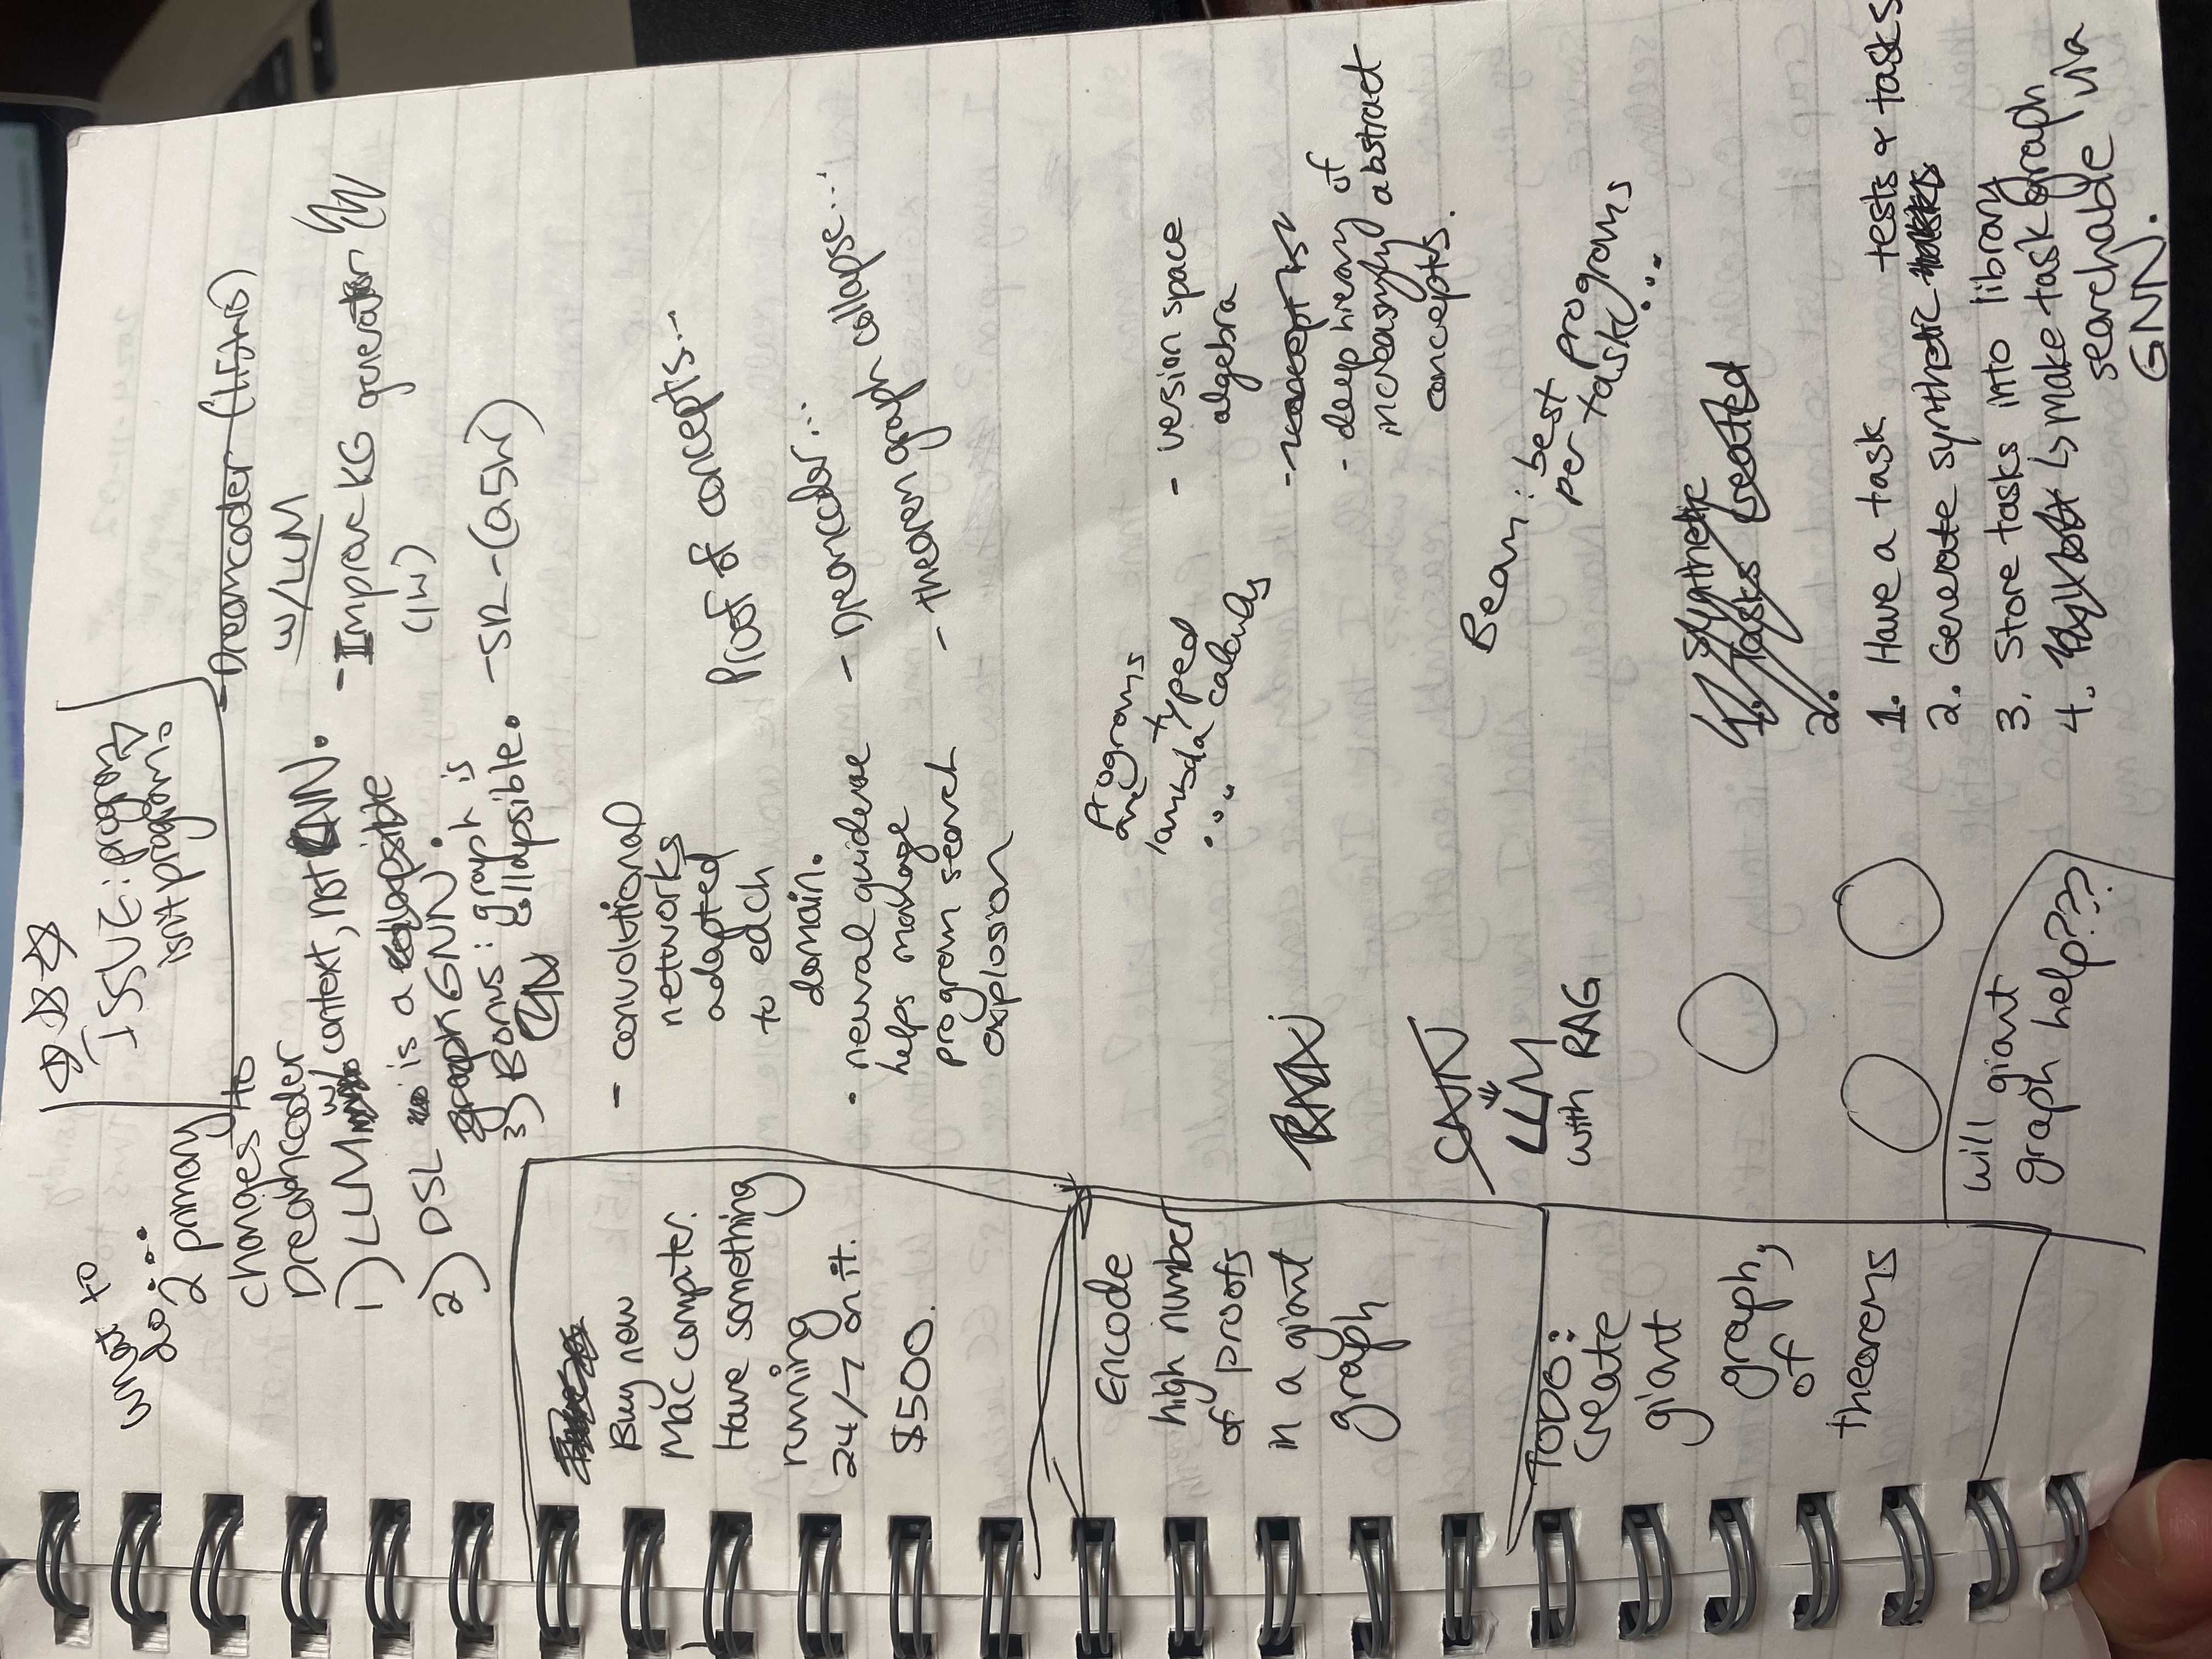 what to
do...
ISSUE: program
isn't program.
2 primary
changes to
Dreamcoder
1) LLM w/ context, not CNN.
2) DSL is a collapsible
graph GNN.
3) Bonus: graph is
collapsible.
- Dreamcoder (1.5w)
w/LLM
- Improve KG generator
(1w)
- SR - (0.5w)
Buy new
Mac computer.
Have something
running
24/7 on it.
$500.
- convolutional
networks
adapted
to each
domain.
• neural guidence
helps manage
program search
explosion
Proof of concepts...
- Dreamcoder...
- theorem graph collapse...
Encode
high number
of proofs
in a giant
graph
programs
are typed
lambda calculus
...
- version space
algebra
- concept is
- deep hierary of
increasingly abstract
concepts.
RNN
CNN
LLM
with RAG
Beam: best programs
per task...
TODO:
create
giant
graph,
of
theorems
synthetic
1. Tasks created
2.
1. Have a task
tests & tasks
2. Generate synthetic tasks
3. Store tasks into library
4. ↳ make task graph
searchable via
GNN.
will giant
graph help???